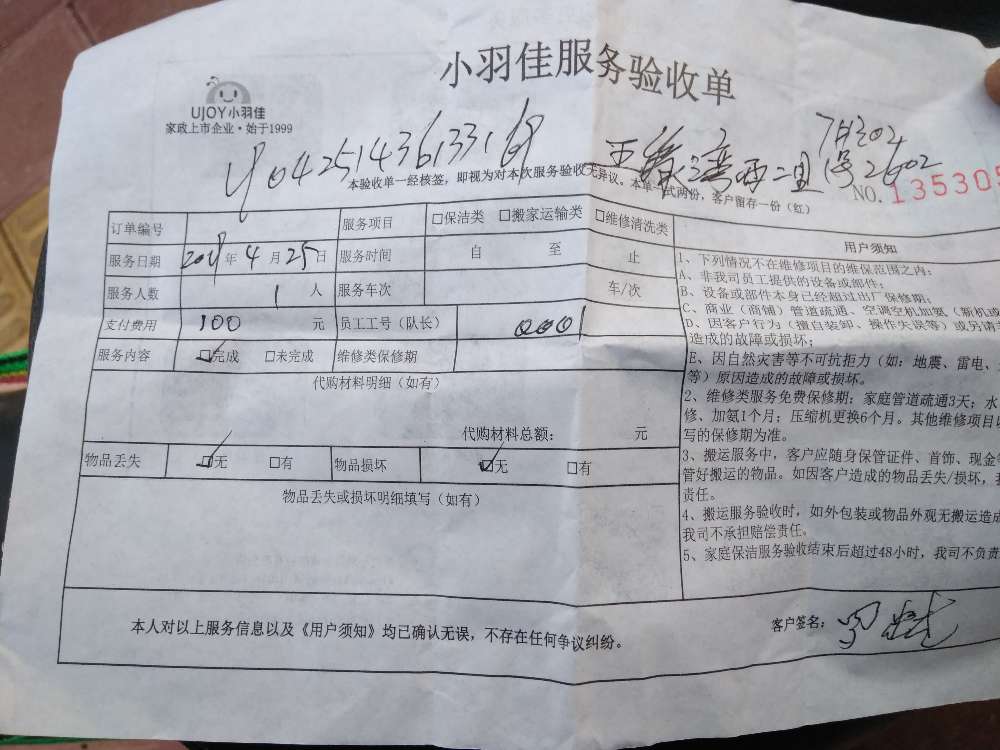 小羽佳服务验收单
UJOY小羽佳
家政上市企业·始于1999
7月302
04251436133
2602
本验收单一经核签，即视为对本次服务验收无异议。本单一式两份，客户留存一份（红）
NO. 135305
订单编号 服务项目 □保洁类 □搬家运输类 □维修清洗类
服务日期 年 4 月 25 日 服务时间 自 至 止
服务人数 1 人 服务车次 车/次
支付费用 100 元 员工工号（队长） 0001
服务内容 ☑完成 □未完成 维修类保修期
代购材料明细（如有）
代购材料总额： 元
物品丢失 ☑无 □有 物品损坏 ☑无 □有
物品丢失或损坏明细填写（如有）
用户须知
1、下列情况不在维修项目的维保范围之内：
A、非我司员工提供的设备或部件；
B、设备或部件本身已经超过出厂保修期；
C、商业（商铺）管道疏通、空调空机加氨（新机或
D、因客户行为（擅自装卸、操作失误等）或另请
造成的故障或损坏；
E、因自然灾害等不可抗拒力（如：地震、雷电、
等）原因造成的故障或损坏。
2、维修类服务免费保修期：家庭管道疏通3天；水
修、加氨1个月；压缩机更换6个月。其他维修项目以
写的保修期为准。
3、搬运服务中，客户应随身保管证件、首饰、现金等
管好搬运的物品。如因客户造成的物品丢失/损坏，我
责任。
4、搬运服务验收时，如外包装或物品外观无搬运造成
我司不承担赔偿责任。
5、家庭保洁服务验收结束后超过48小时，我司不负责
本人对以上服务信息以及《用户须知》均已确认无误，不存在任何争议纠纷。
客户签名：